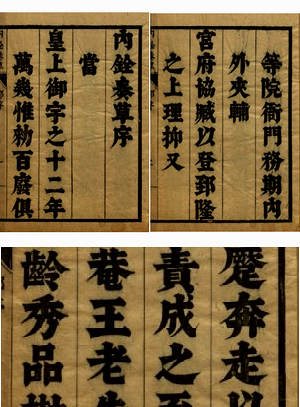 內銓奏草序
當
皇上御宇之十二年
萬幾惟勑百廢俱
等院衙門務期內
外夾輔
宮府協臧以登郅隆
之上理抑又
奔走以
責成之
巷王老
齡秀品